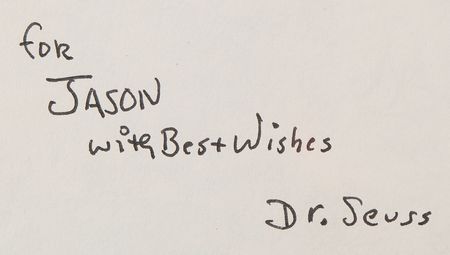 for
JASON
with Best Wishes
Dr. Seuss